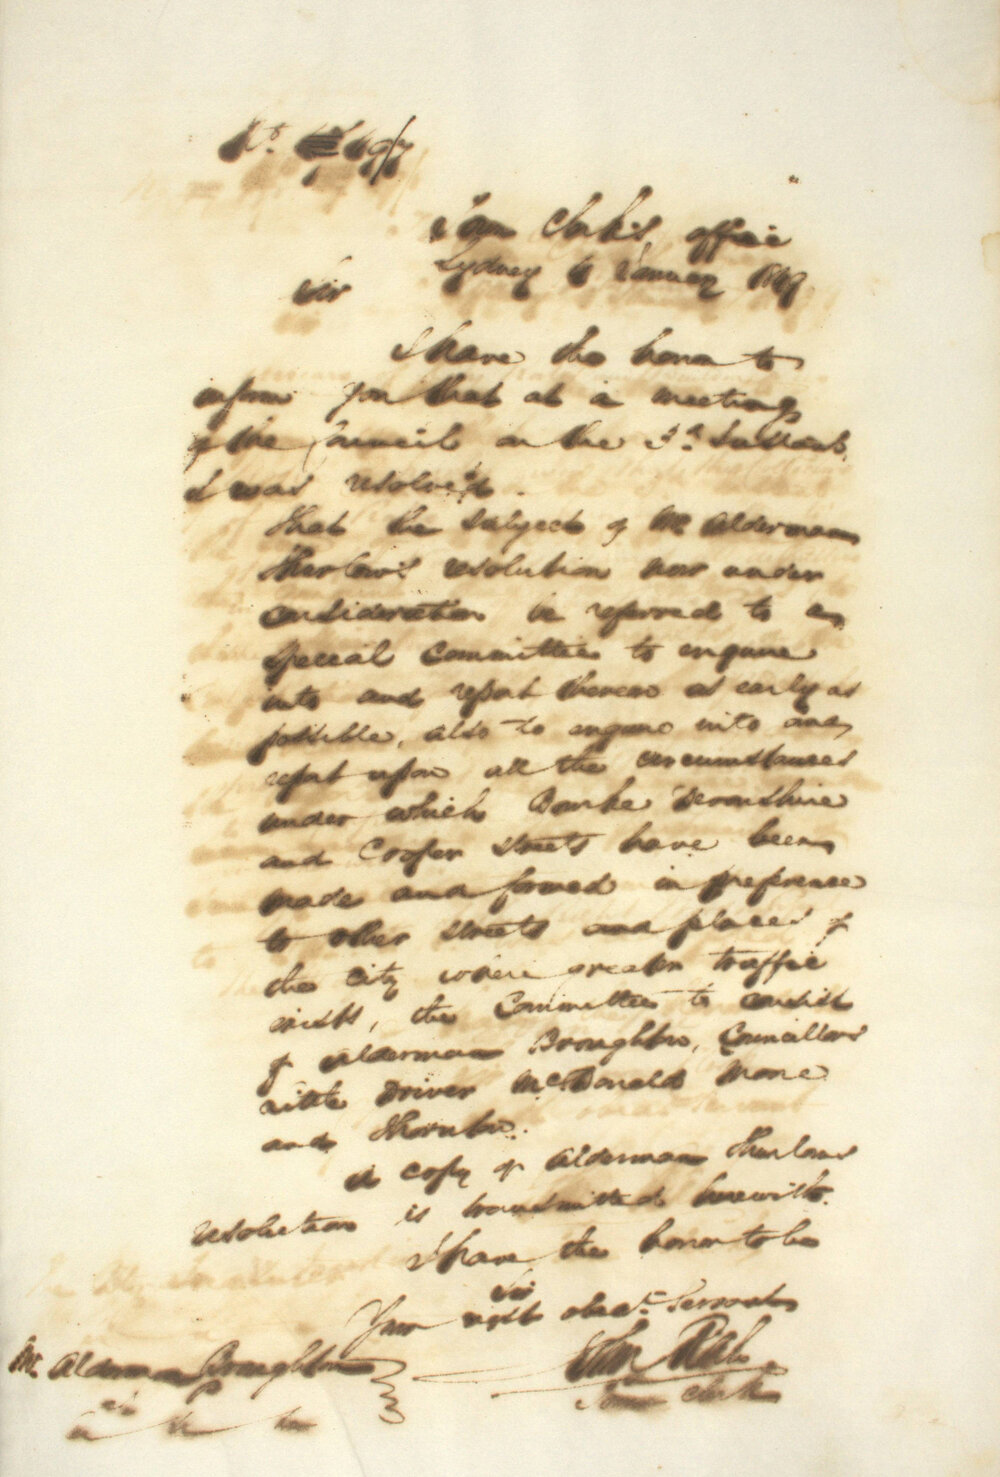 Town Clerk's Office
Sydney 6 January 1849
Sir
I have the honor to
inform you that at a meeting
of the Council on the 3d Instant,
it was resolved.
That the subject of Mr Alderman
Thurlow's resolution now under
consideration be referred to a
Special Committee to enquire
into and report thereon as early as
possible, also to enquire into and
report upon all the circumstances
under which Bourke Devonshire
and Cooper Streets have been
made and formed in preference
to other streets and places of
the City where greater traffic
exists, the Committee to consist
of Alderman Broughton, Councillors
Little Driver McDonald More
and Thornton.
A copy of Alderman Thurlows
resolution is transmitted herewith.
I have the honor to be
Sir
Your most obedt Servant
John Rae
Town Clerk
Mr Alderman Broughton
&c &c &c